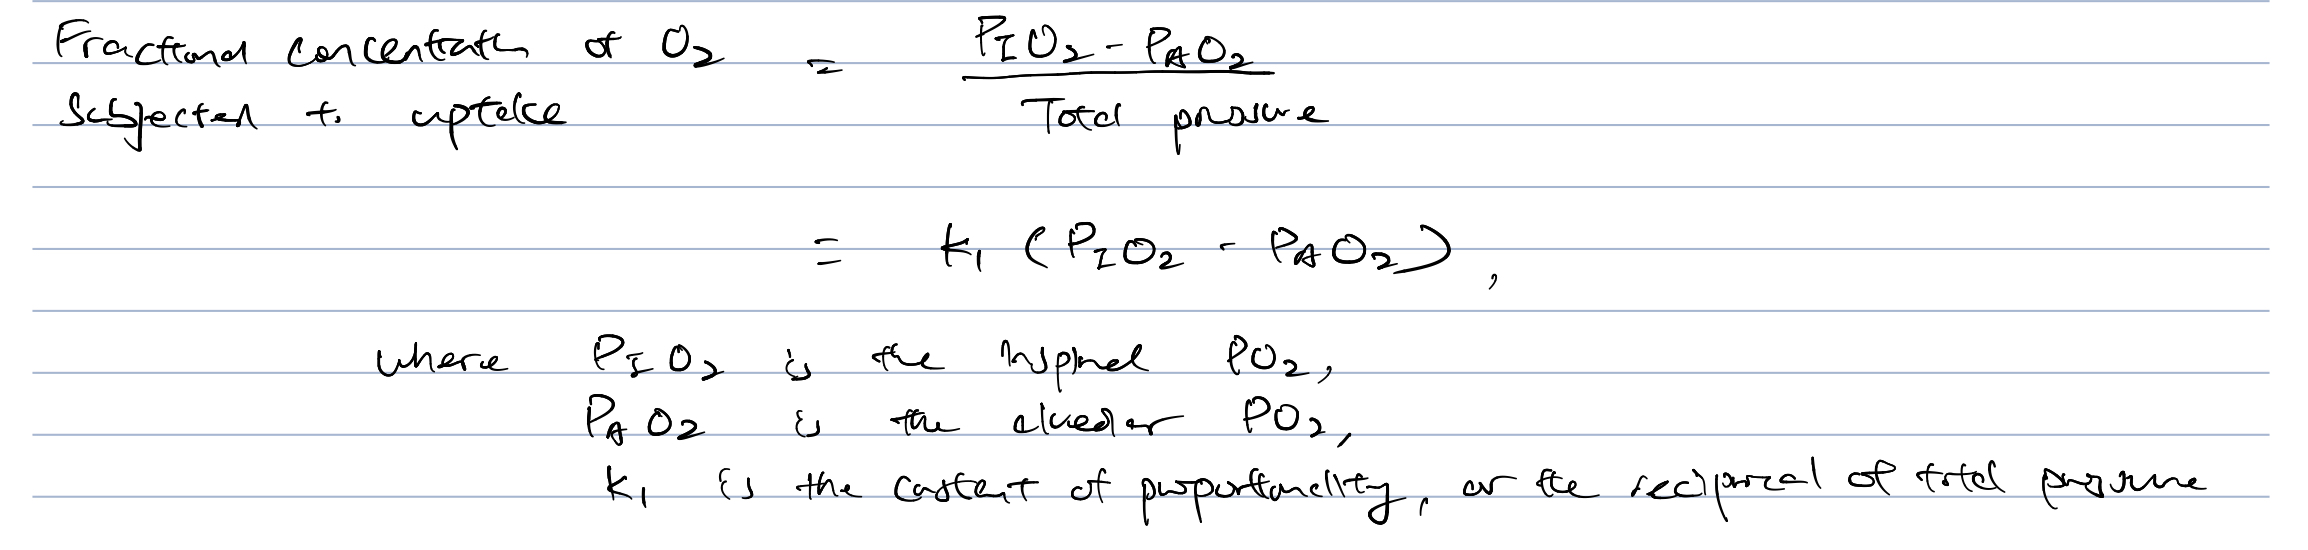 Fractional concentration of O₂ = (P_I O₂ - P_A O₂) / Total pressure
Subjected to uptake
= k₁ (P_I O₂ - P_A O₂),
where P_I O₂ is the inspired PO₂,
P_A O₂ is the alveolar PO₂,
k₁ is the constant of proportionality, or the reciprocal of total pressure